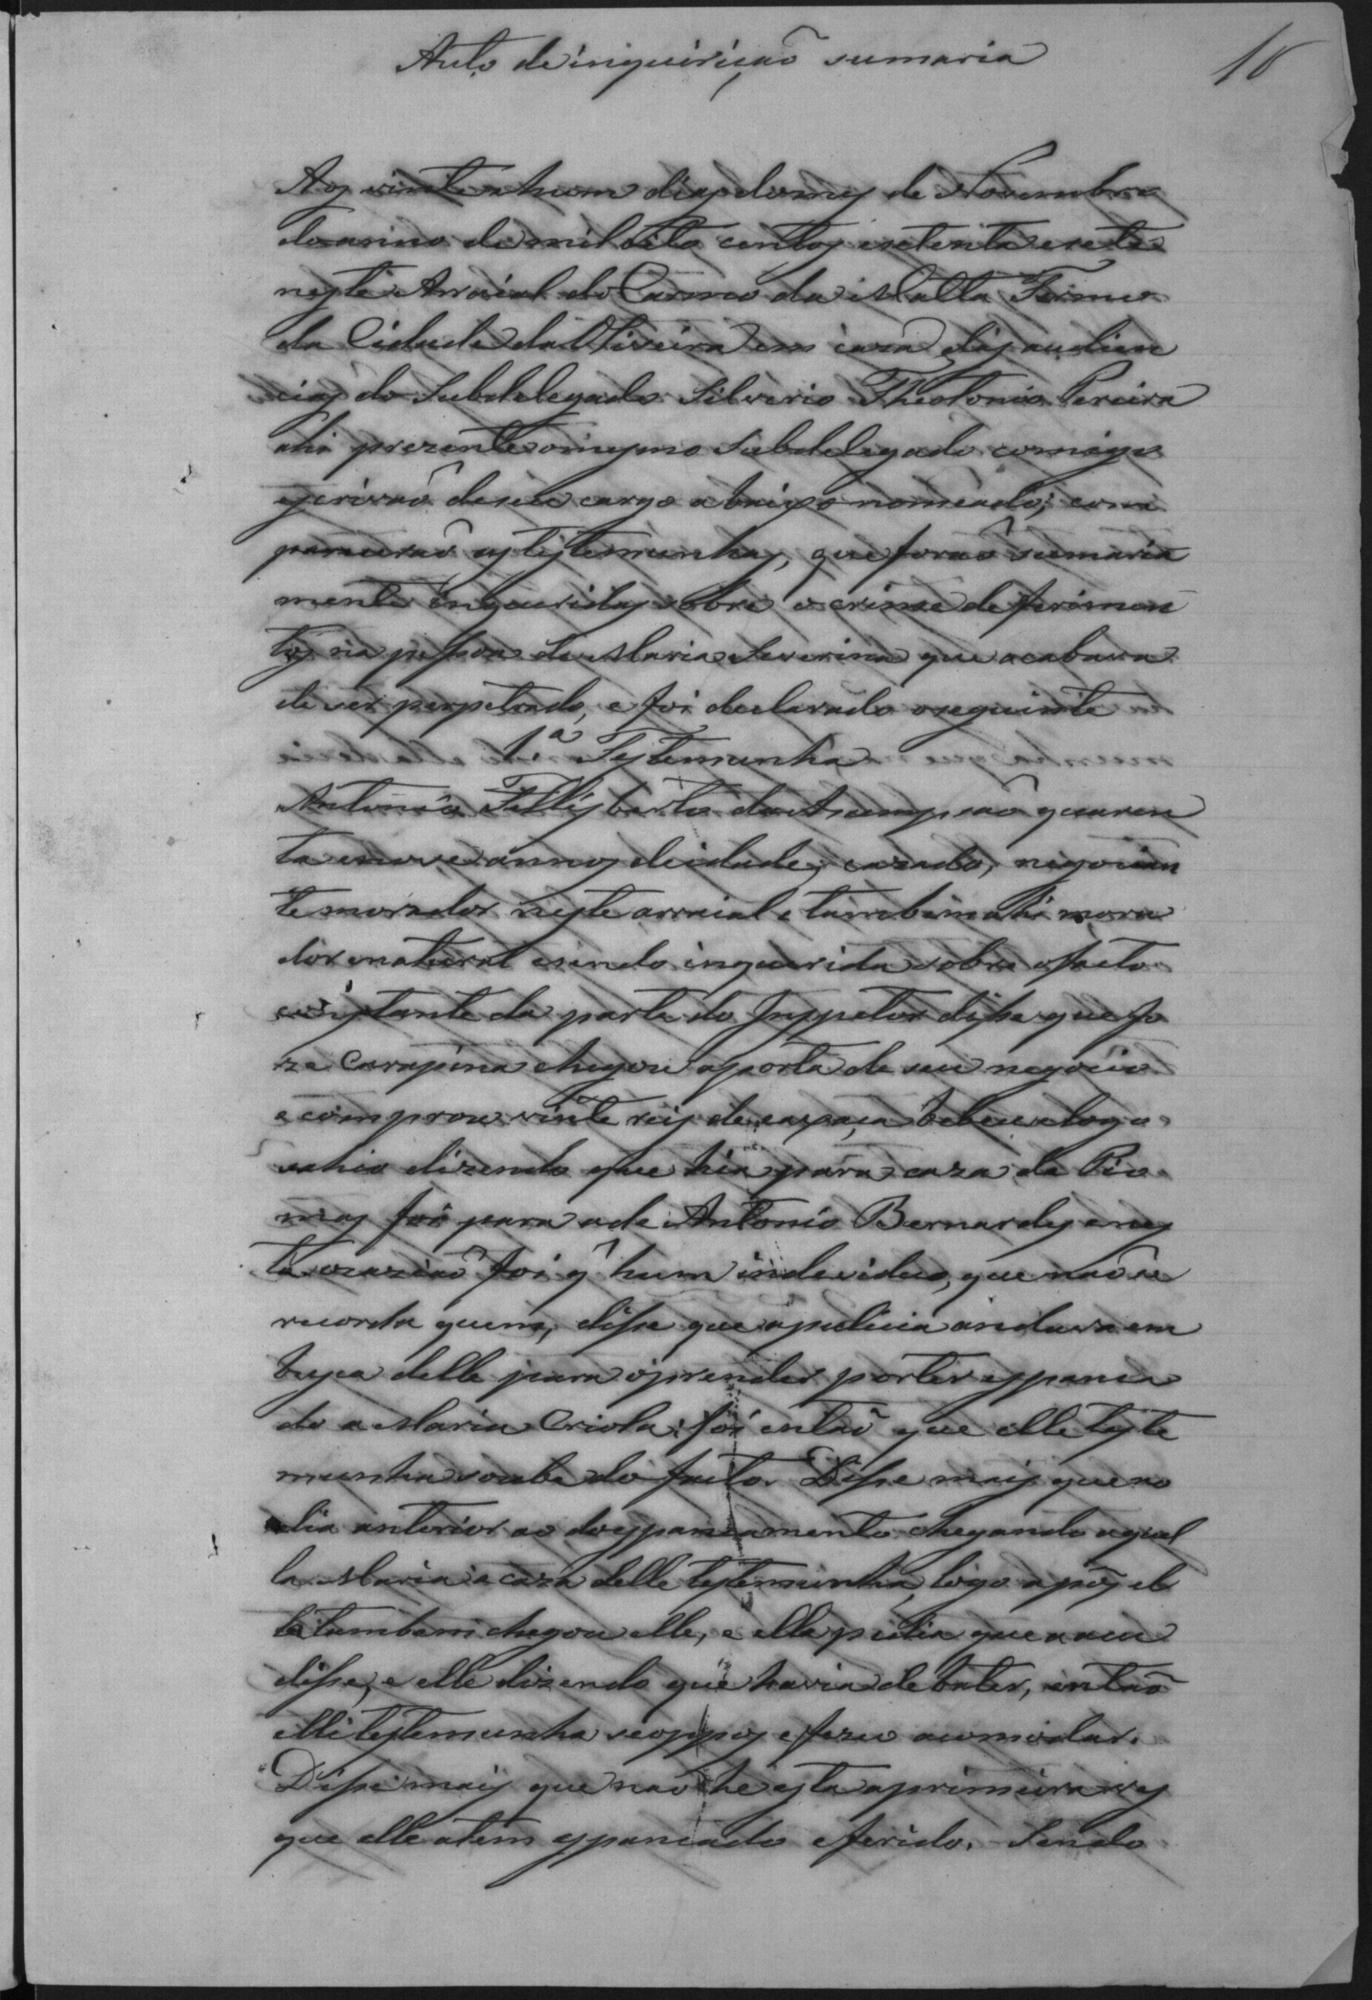 Auto de inquirição sumaria
10
Aos vinte e hum dias do mes de Novembro
do anno de mil oito centos e setenta e sete
neste Arraial do Carmo da Matta Termo
da Cidade da Oliveira em caza das audien
cias do Subdelegado Silverio Theotonio Pereira
ahi prezente o mesmo Subdelegado comigo
escrivão de seu cargo abaixo nomeado; com
parecerão as testemunhas, que forão sumaria
mente inqueridas sobre o crime de ferimen
tos na pessoa de Maria Severina que acabava
de ser perpetrado, e foi declarado o seguinte
1.ª Testemunha
Antonio Fellisberto da Asumpsão quaren
ta e nove annos de idade, cazado, negocian
te morador neste arraial e tambem ahi mora
dor e natural e sendo inquerida sobre o facto
constante da parte do Inspetor disse que Jo
ze Carapina chegou a porta de seu negocio
e comprou vinte reis de caxaça bebeu e logo
sahio dizendo que hia para caza de Pio
mas foi para a de Antonio Bernardes e nes
ta ocazião foi q hum individuo, que não se
recorda quem, disse que a pulicia andava em
busca delle para o prender por ter espanca
do a Maria Criola; foi então que elle teste
munha soube do facto. Disse mais que no
dia anterior ao do espancamento chegando aquel
la Maria a caza delle testemunha, logo apos el
la tambem chegou elle, e ella pidia que a acu
disse, e elle dizendo que havia de bater, então
elle testemunha se oppos e fez o acomodar.
Disse mais que não he esta a primeira ves
que elle a tem espancado e ferido. Sendo